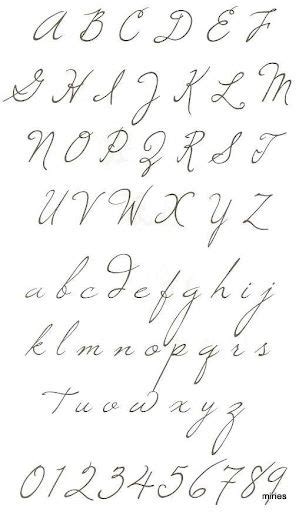 A B C D E F
G H I J K L M
N O P Q R S T
U V W X Y Z
a b c d e f g h i j
k l m n o p q r s
T u v w x y z
0 1 2 3 4 5 6 7 8 9
miries